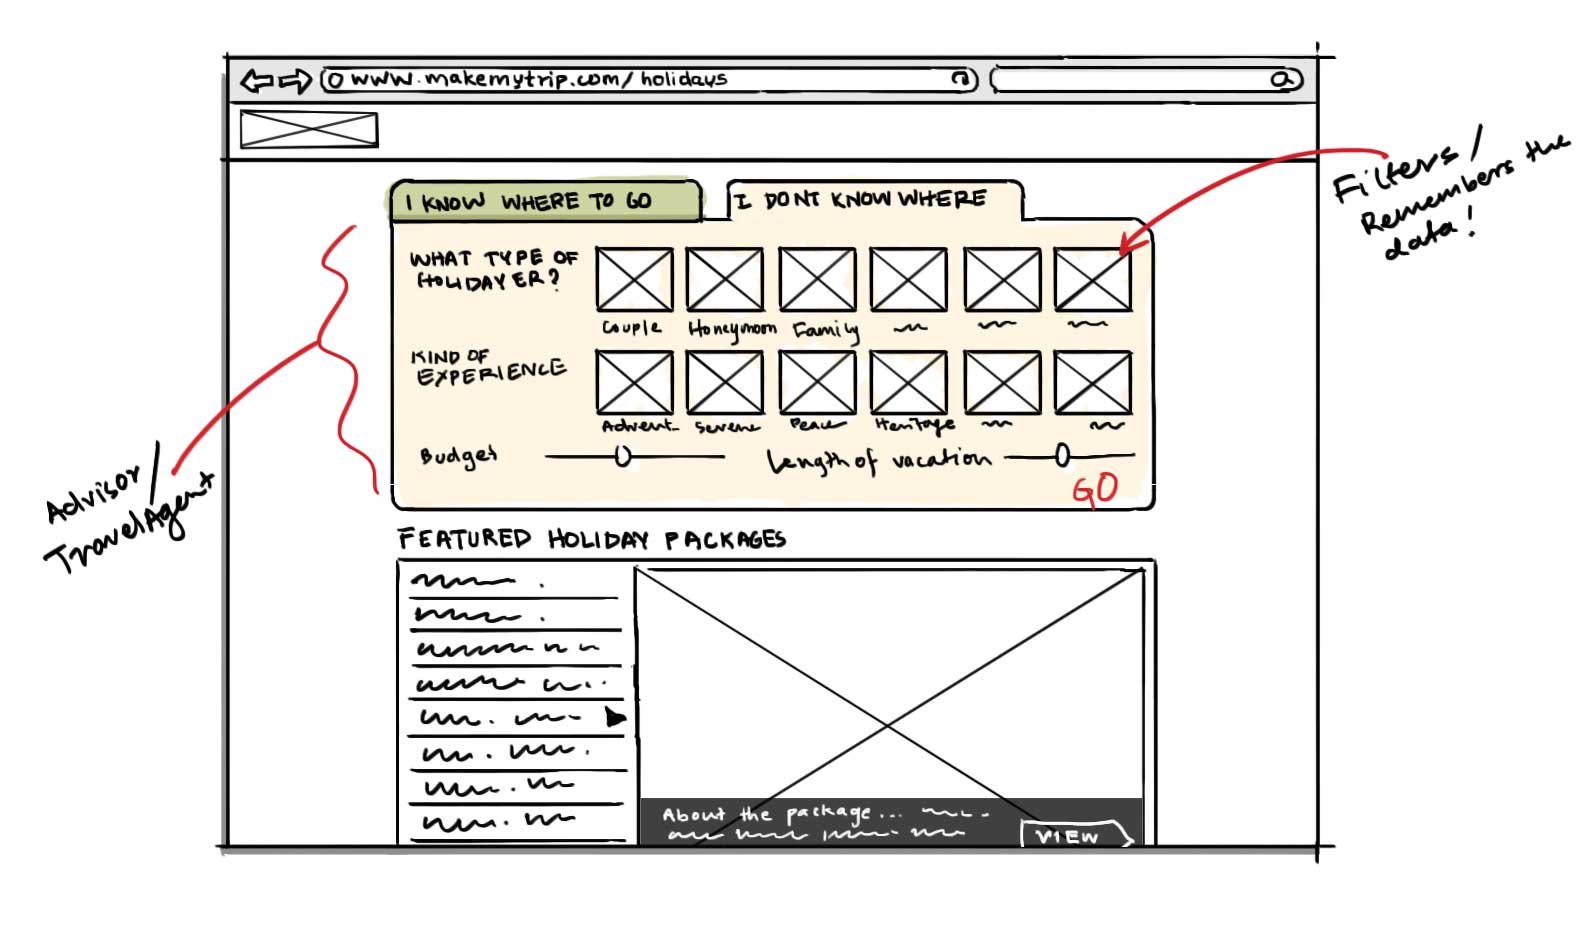 www.makemytrip.com/holidays
Filters/
Remembers the
data!
I KNOW WHERE TO GO
I DONT KNOW WHERE
WHAT TYPE OF
HOLIDAYER?
Couple
Honeymoon
Family
KIND OF
EXPERIENCE
Advent
Serene
Peace
Heritage
Budget
Length of vacation
GO
Advisor/
Travel Agent
FEATURED HOLIDAY PACKAGES
About the package...
VIEW